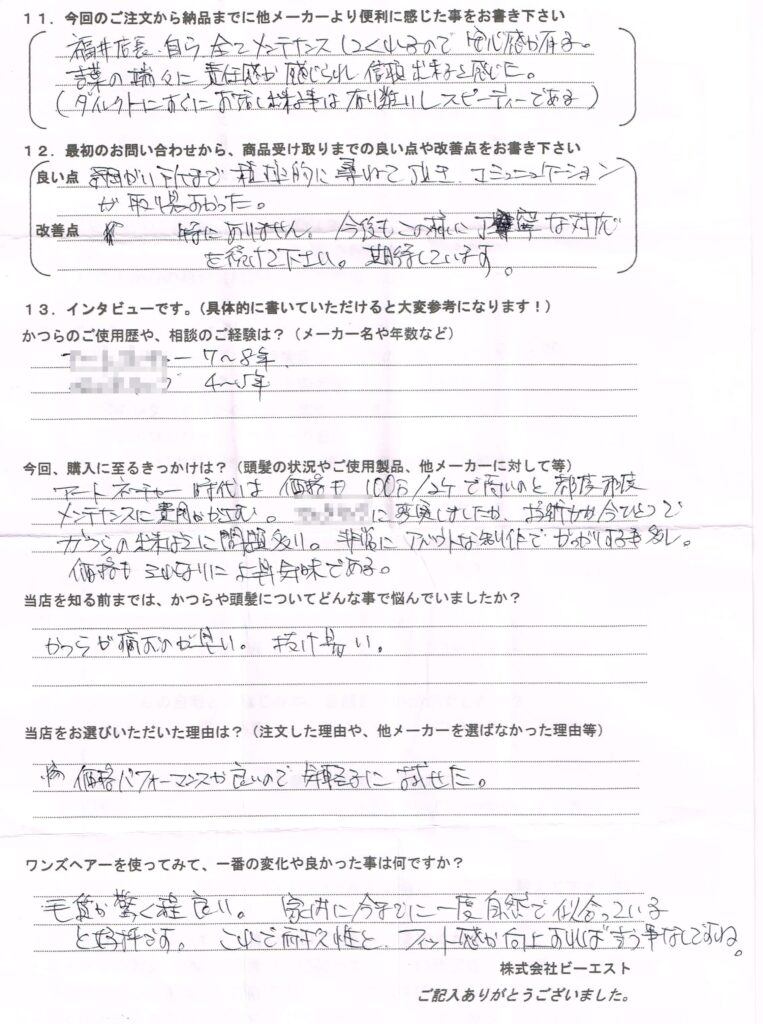 11. 今回のご注文から納品までに他メーカーより便利に感じた事をお書き下さい
福井店長自ら全てメンテナンスしてくれるので安心感が有る。
言葉の端々に責任感が感じられ信頼出来ると感じた。
(ダイレクトにすぐにお話し出来る事は有り難いしスピーディーである)
12. 最初のお問い合わせから、商品受け取りまでの良い点や改善点をお書き下さい
良い点 細かい所まで積極的に尋ねて頂き、コミュニュケーション
が取り易かった。
改善点 特にありません、今後もこの様に丁寧な対応
を続けて下さい。期待しています。
13. インタビューです。(具体的に書いていただけると大変参考になります!)
かつらのご使用歴や、相談のご経験は?(メーカー名や年数など)
ー 7〜8年
4〜5年
今回、購入に至るきっかけは?(頭髪の状況やご使用製品、他メーカーに対して等)
アートネーチャー時代は価格も100万/2ケで高いのと都度都度
メンテナンスに費用がかさむ。 に変更しましたが、お紙力が今ひとつで
かつらの出来ばえに問題多い。非常にアバウトな製作でがっかりする事多し。
価格もそれなりに上昇気味である。
当店を知る前までは、かつらや頭髪についてどんな事で悩んでいましたか?
かつらが痛むのが早い。抜け易い。
当店をお選びいただいた理由は?(注文した理由や、他メーカーを選ばなかった理由等)
価格パフォーマンスが良いので気軽に試せた。
ワンズヘアーを使ってみて、一番の変化や良かった事は何ですか?
毛質が驚く程良い。家内に今までに一度自然で似合っている
と好評です。これで耐久性と、フィット感が向上すれば言う事なしですね。
株式会社ビーエスト
ご記入ありがとうございました。